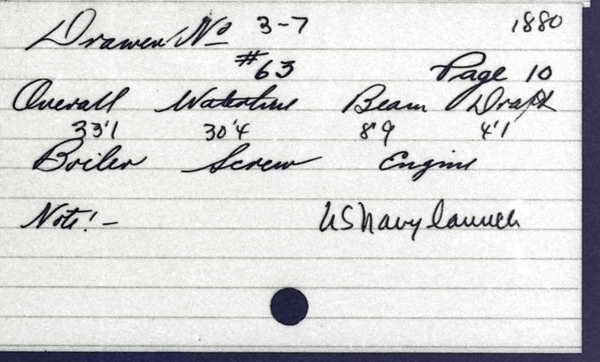 Drawer No 3-7 1880
#63 Page 10
Overall Waterline Beam Draft
33'1 30'4 8'9 4'1
Boiler Screw Engine
Note:- US Navy launch